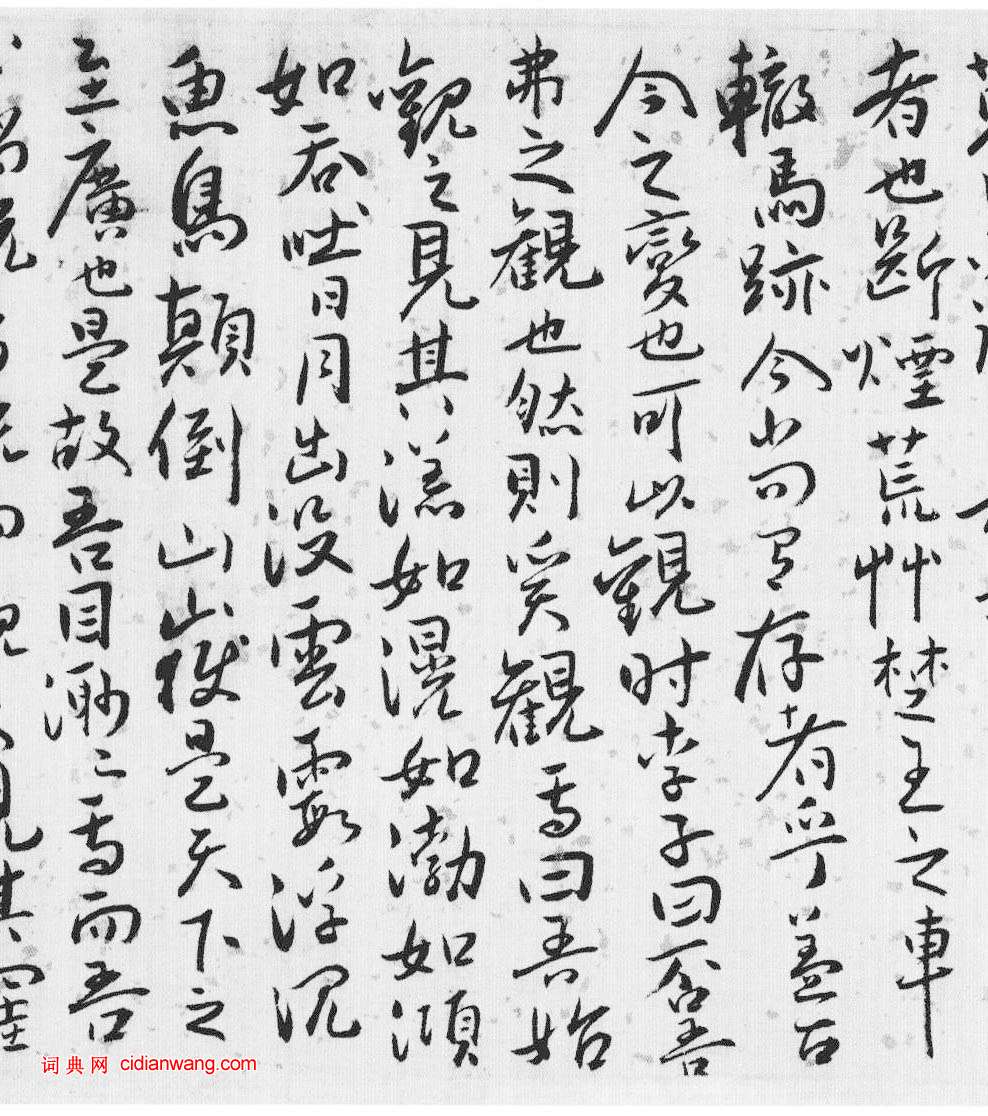 者也斷煙荒艸楚王之車
轍馬跡今尚有存者乎蓋古
今之變也可以觀時李子曰否吾
弗之觀也然則奚觀焉曰吾始
觀之見其漾如滉如渤如澒
如吞吐日月出沒雲霞浮沉
魚鳥顛倒山嶽是天下之
至廣也是故吾目渺〻焉而吾
詞典网 cidianwang.com